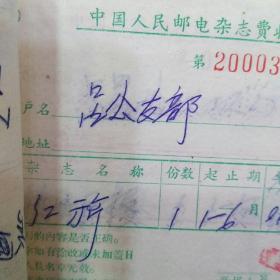 中国人民邮电杂志費收
第 20003
户名 吕公支部
地址
杂志名称 份数 起止期
红旗 1 1-6月
的内容是否正确。
如有涂改或未加盖日